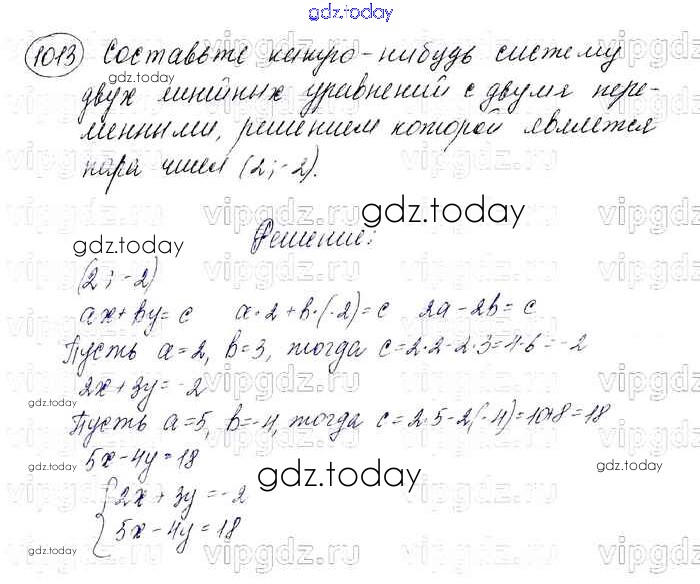 gdz.today
1013 Составьте какую-нибудь систему
gdz.today
двух линейных уравнений с двумя пере-
менными, решением которой является
пара чисел (2;-2).
gdz.today
gdz.today
Решение:
(2;-2)
ax+by=c a·2+b·(-2)=c 2a-2b=c
Пусть a=2, b=3, тогда c=2·2-2·3=4-6=-2
2x+3y=-2
gdz.today
Пусть a=5, b=-4, тогда c=2·5-2(-4)=10+8=18
5x-4y=18
gdz.today
gdz.today
{2x+3y=-2
5x-4y=18
gdz.today
gdz.today
vipgdz.ru